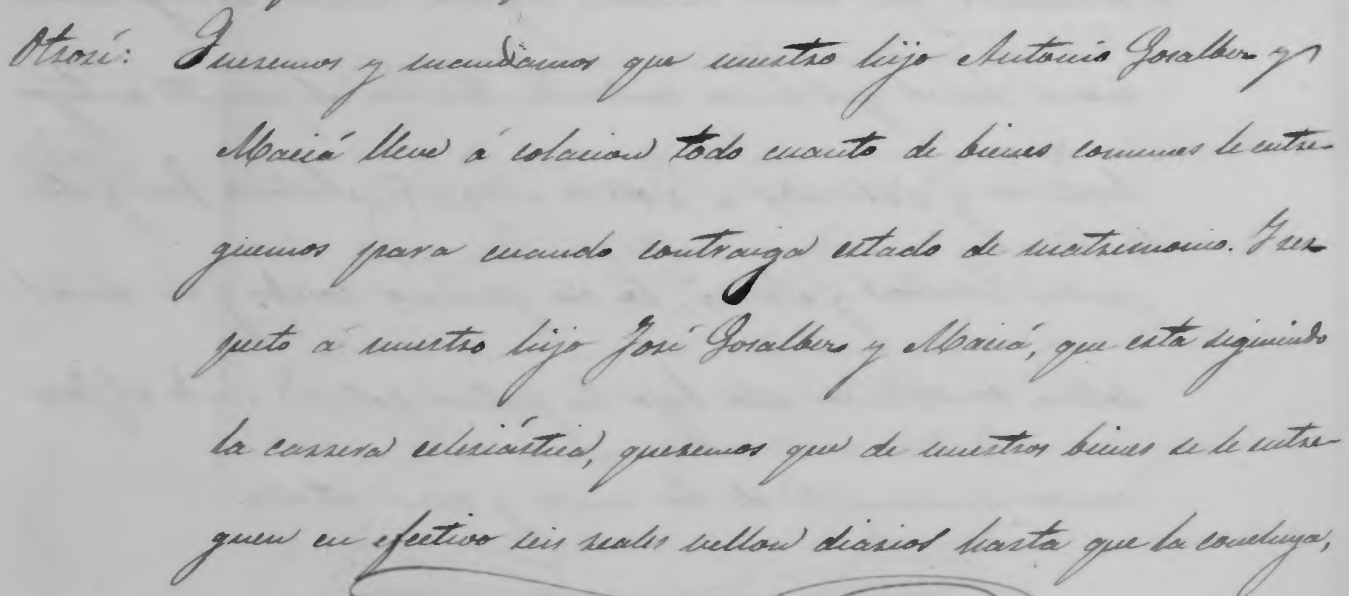 Otrosí: Queremos y mandamos que nuestro hijo Antonio Gosalbez y
Maciá lleve á colacion todo cuanto de bienes comunes le entre-
guemos para cuando contraiga estado de matrimonio. Y res-
peto á nuestro hijo José Gosalbez y Maciá, que esta siguiendo
la carrera eclesiástica, queremos que de nuestros bienes se le entre-
guen en efectivo seis reales vellon diarios hasta que la concluya,